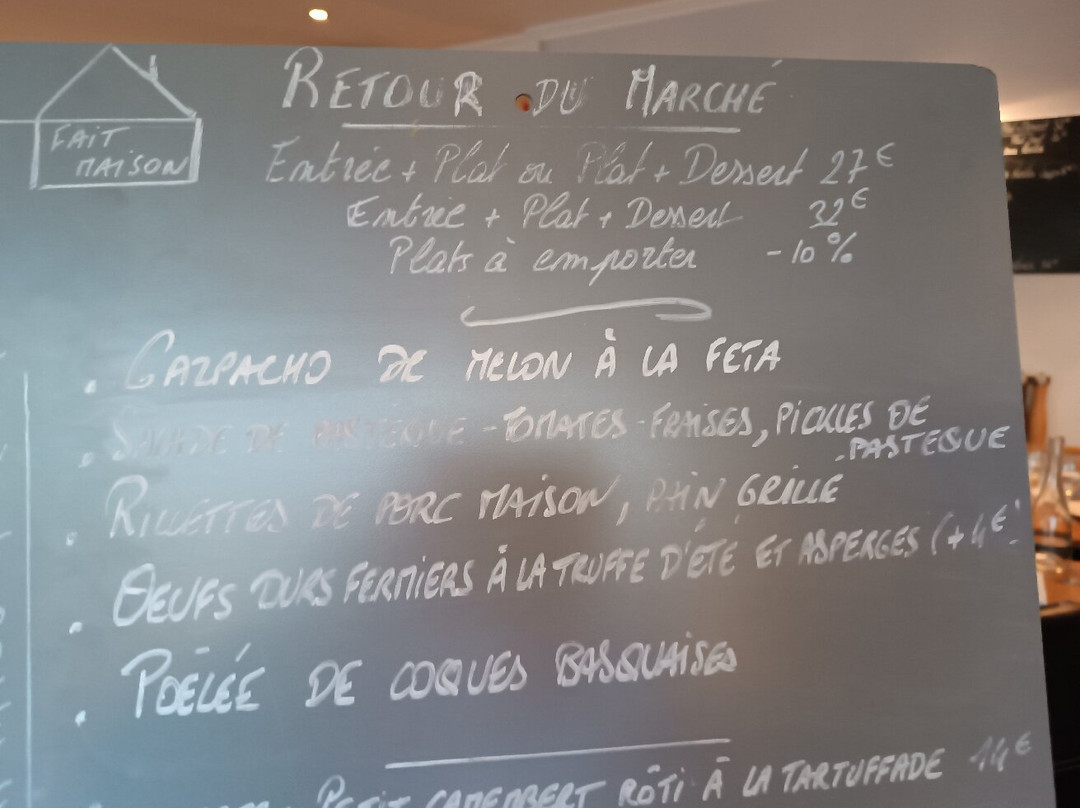 FAIT
MAISON
RETOUR DU MARCHÉ
Entrée + Plat ou Plat + Dessert 27€
Entrée + Plat + Dessert 32€
Plats à emporter -10%
. GAZPACHO DE MELON À LA FETA
. SALADE DE PASTEQUE - TOMATES - FRAISES, PICKLES DE
PASTEQUE
. RILLETTES DE PORC MAISON, PAIN GRILLÉ
. OEUFS DURS FERMIERS À LA TRUFFE D'ÉTÉ ET ASPERGES (+4€)
. POÊLÉE DE COQUES BASQUAISES
PETIT CAMEMBERT RÔTI À LA TARTUFFADE 14€